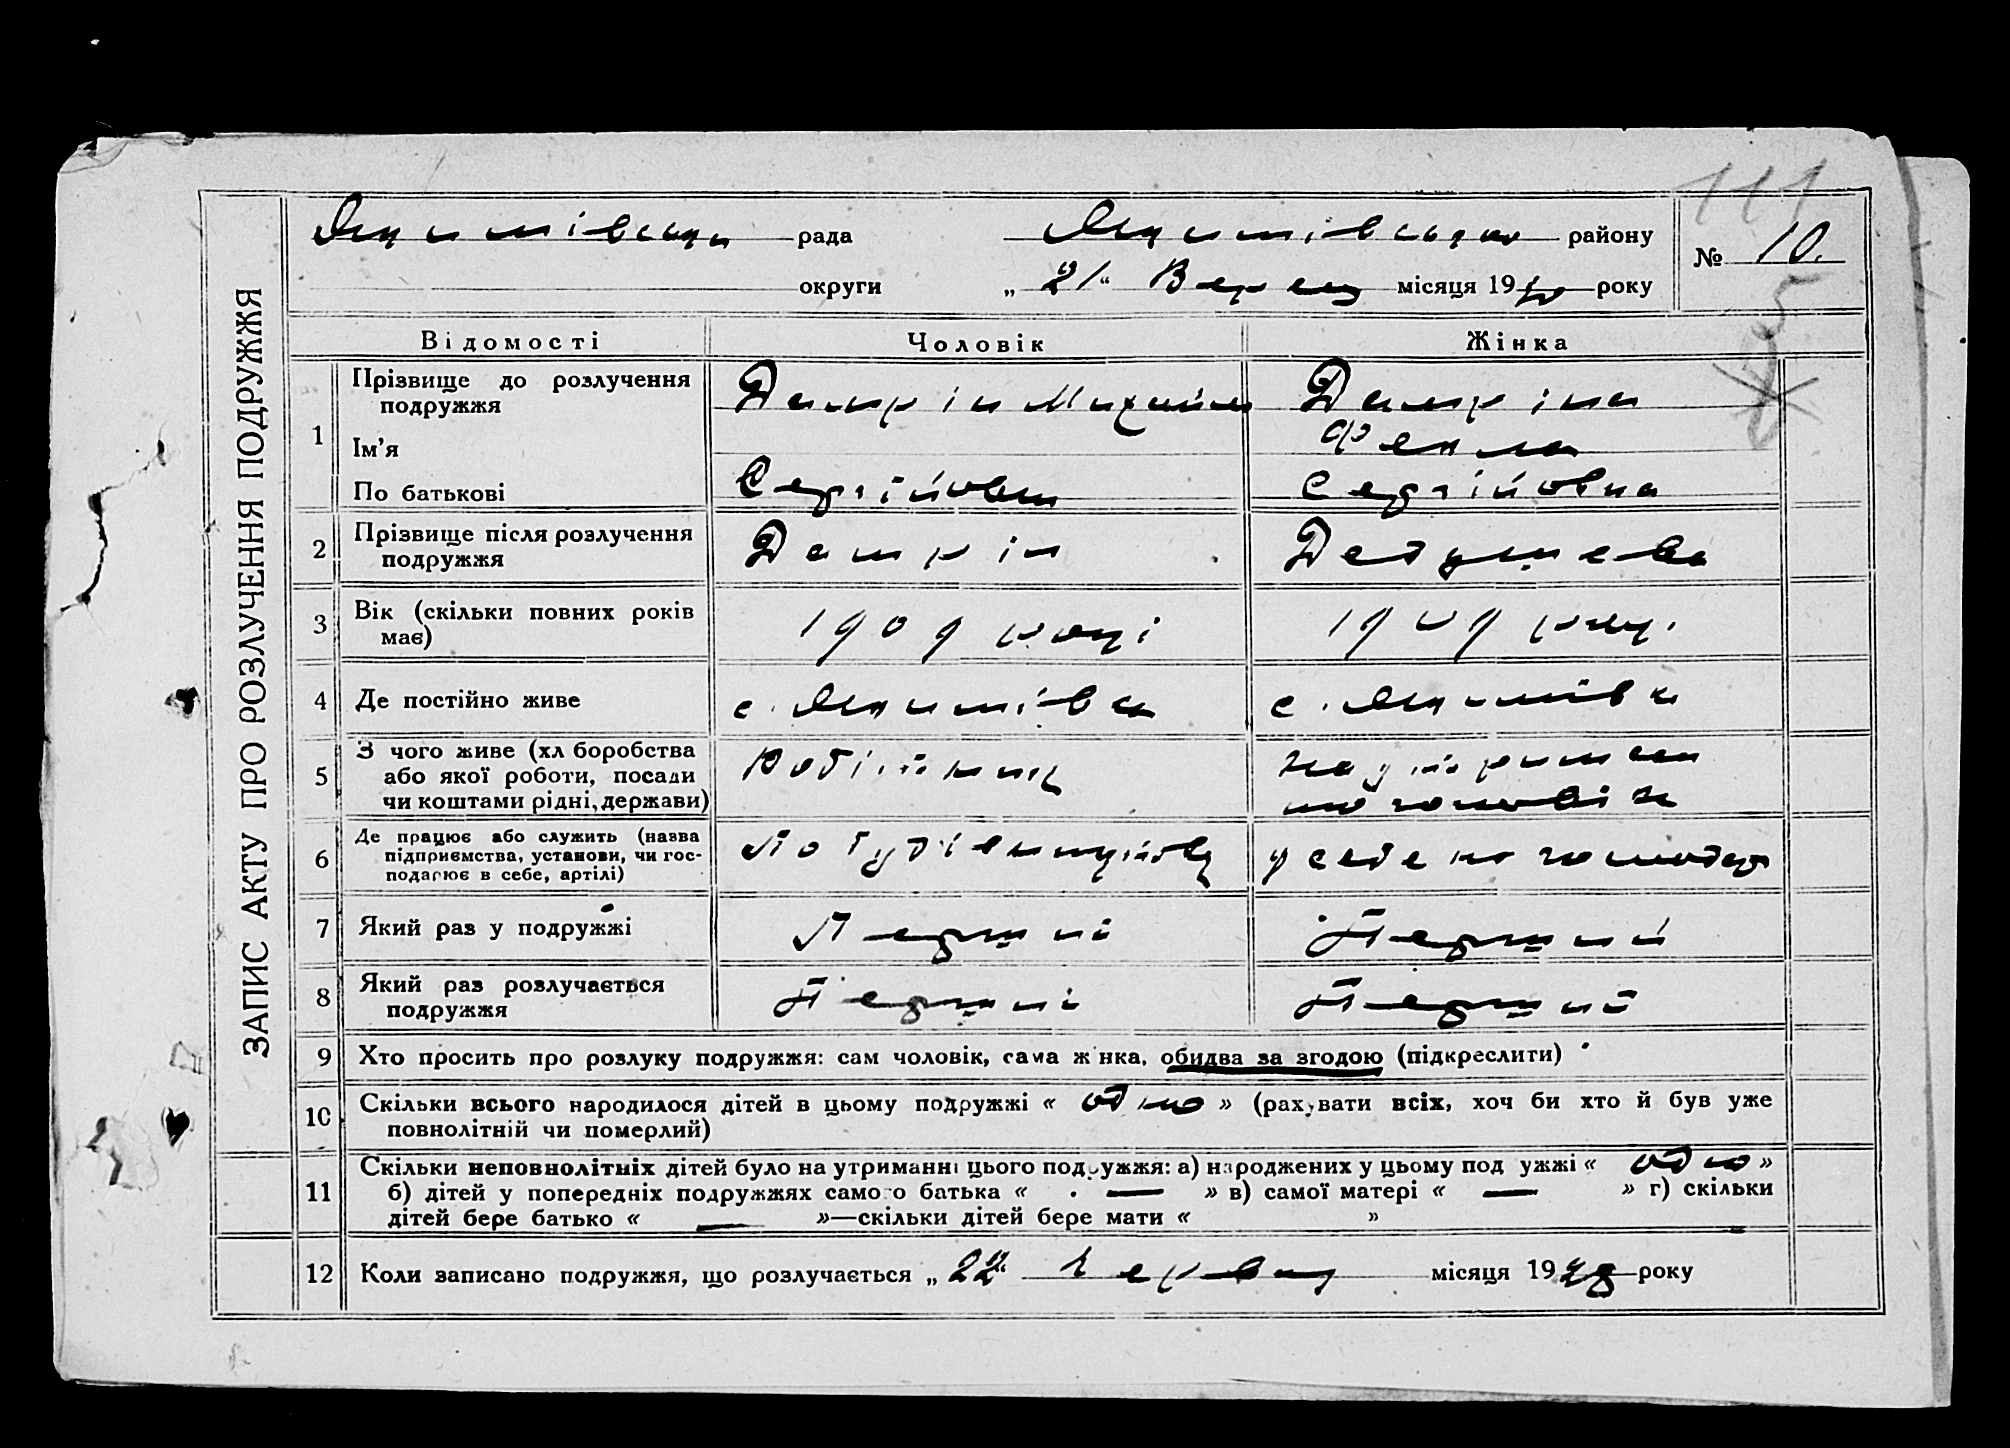 111
Якимівська рада Якимівського району № 10.
округи „21“ Верес місяця 19 року
5
ЗАПИС АКТУ ПРО РОЗЛУЧЕННЯ ПОДРУЖЖЯ
Відомості Чоловік Жінка
1 Прізвище до розлучення подружжя Михайло
Ім’я Фекла
По батькові Сергійович Сергійовна
2 Прізвище після розлучення подружжя
3 Вік (скільки повних років має) 1909 році 1909 році
4 Де постійно живе с. Якимівка с. Якимівка
5 З чого живе (хліборобства або якої роботи, посади чи коштами рідні, держави) Робітник на утриман чоловіка
6 Де працює або служить (назва підприємства, установи, чи господарює в себе, артілі) по у себе
7 Який раз у подружжі Перший Перший
8 Який раз розлучається подружжя Перший Перший
9 Хто просить про розлуку подружжя: сам чоловік, сама жінка, обидва за згодою (підкреслити)
10 Скільки всього народилося дітей в цьому подружжі « одно » (рахувати всіх, хоч би хто й був уже
повнолітній чи померлий)
11 Скільки неповнолітніх дітей було на утриманні цього подружжя: а) народжених у цьому подружжі « одно »
б) дітей у попередніх подружжях самого батька « — » в) самої матері « — » г) скільки
дітей бере батько « — »—скільки дітей бере мати « »
12 Коли записано подружжя, що розлучається „22“ Червня місяця 1928 року